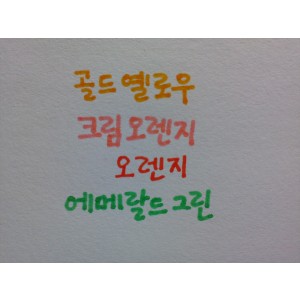 골드 옐로우
크림 오렌지
오렌지
에메랄드 그린